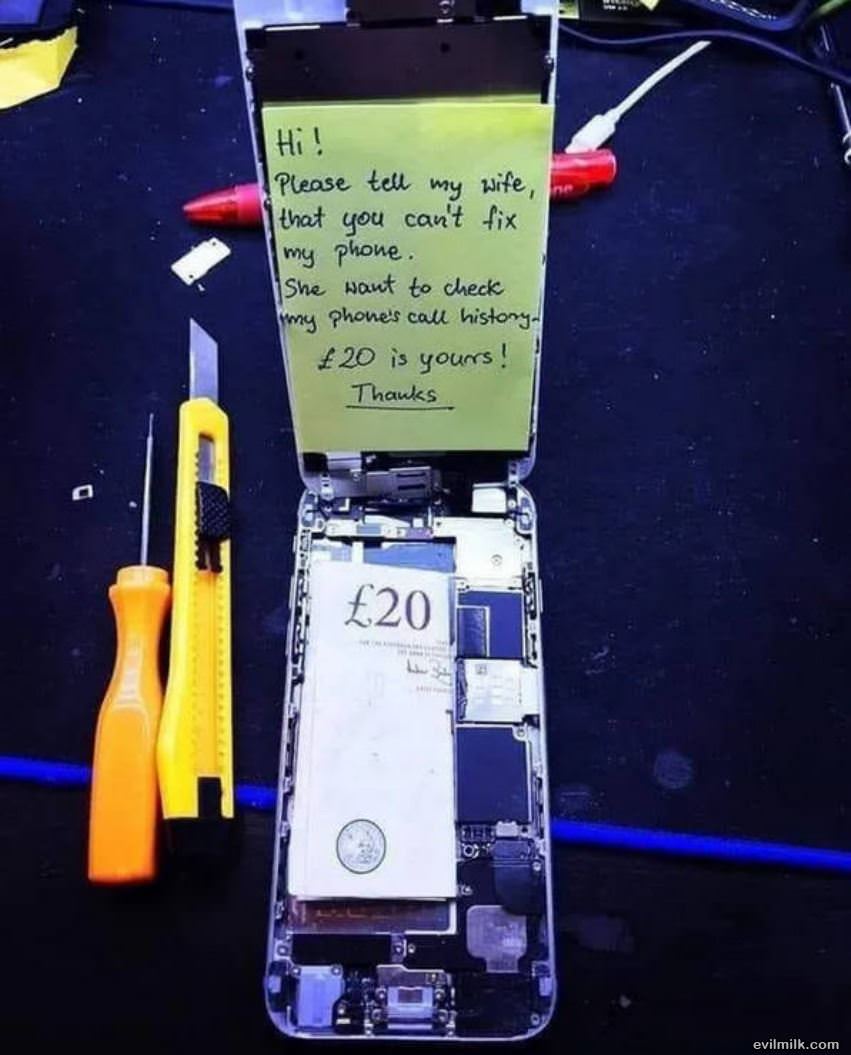 Hi!
Please tell my wife,
that you can't fix
my phone.
She want to check
my phone's call history.
£20 is yours!
Thanks
£20
evilmilk.com